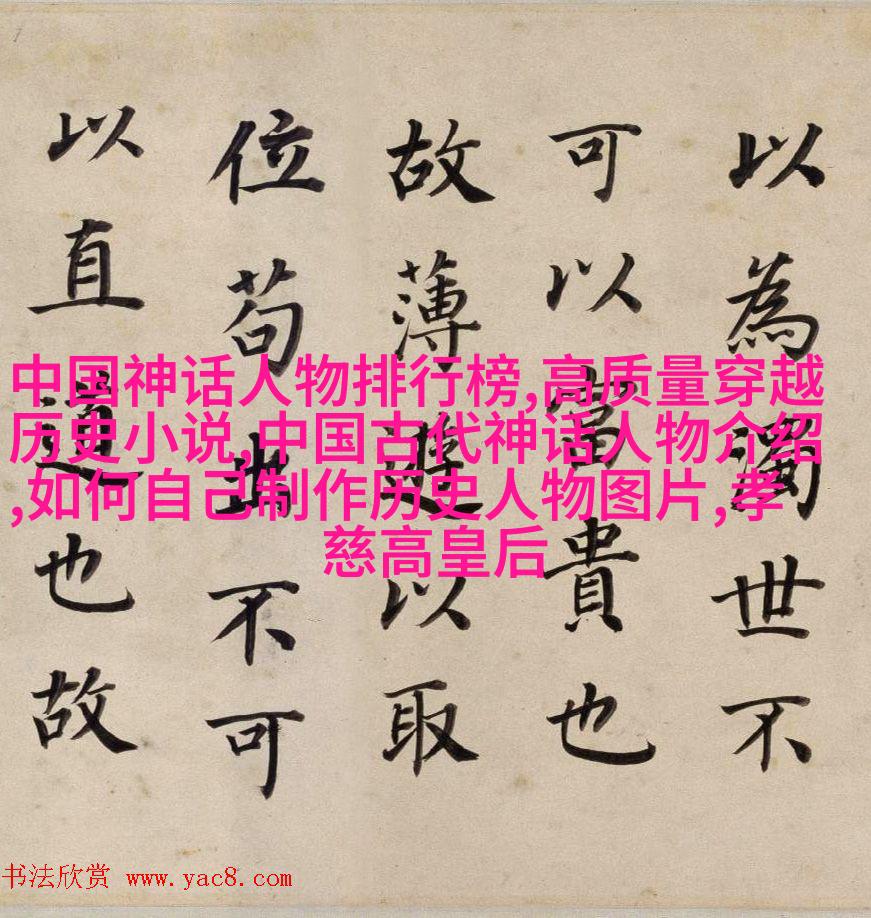 以為濁世不
可以富貴也
故薄遊以取
位苟出不可
以直道也故
中国神话人物排行榜,高质量穿越
历史小说,中国古代神话人物介绍
,如何自己制作历史人物图片,孝
慈高皇后
书法欣赏 www.yac8.com